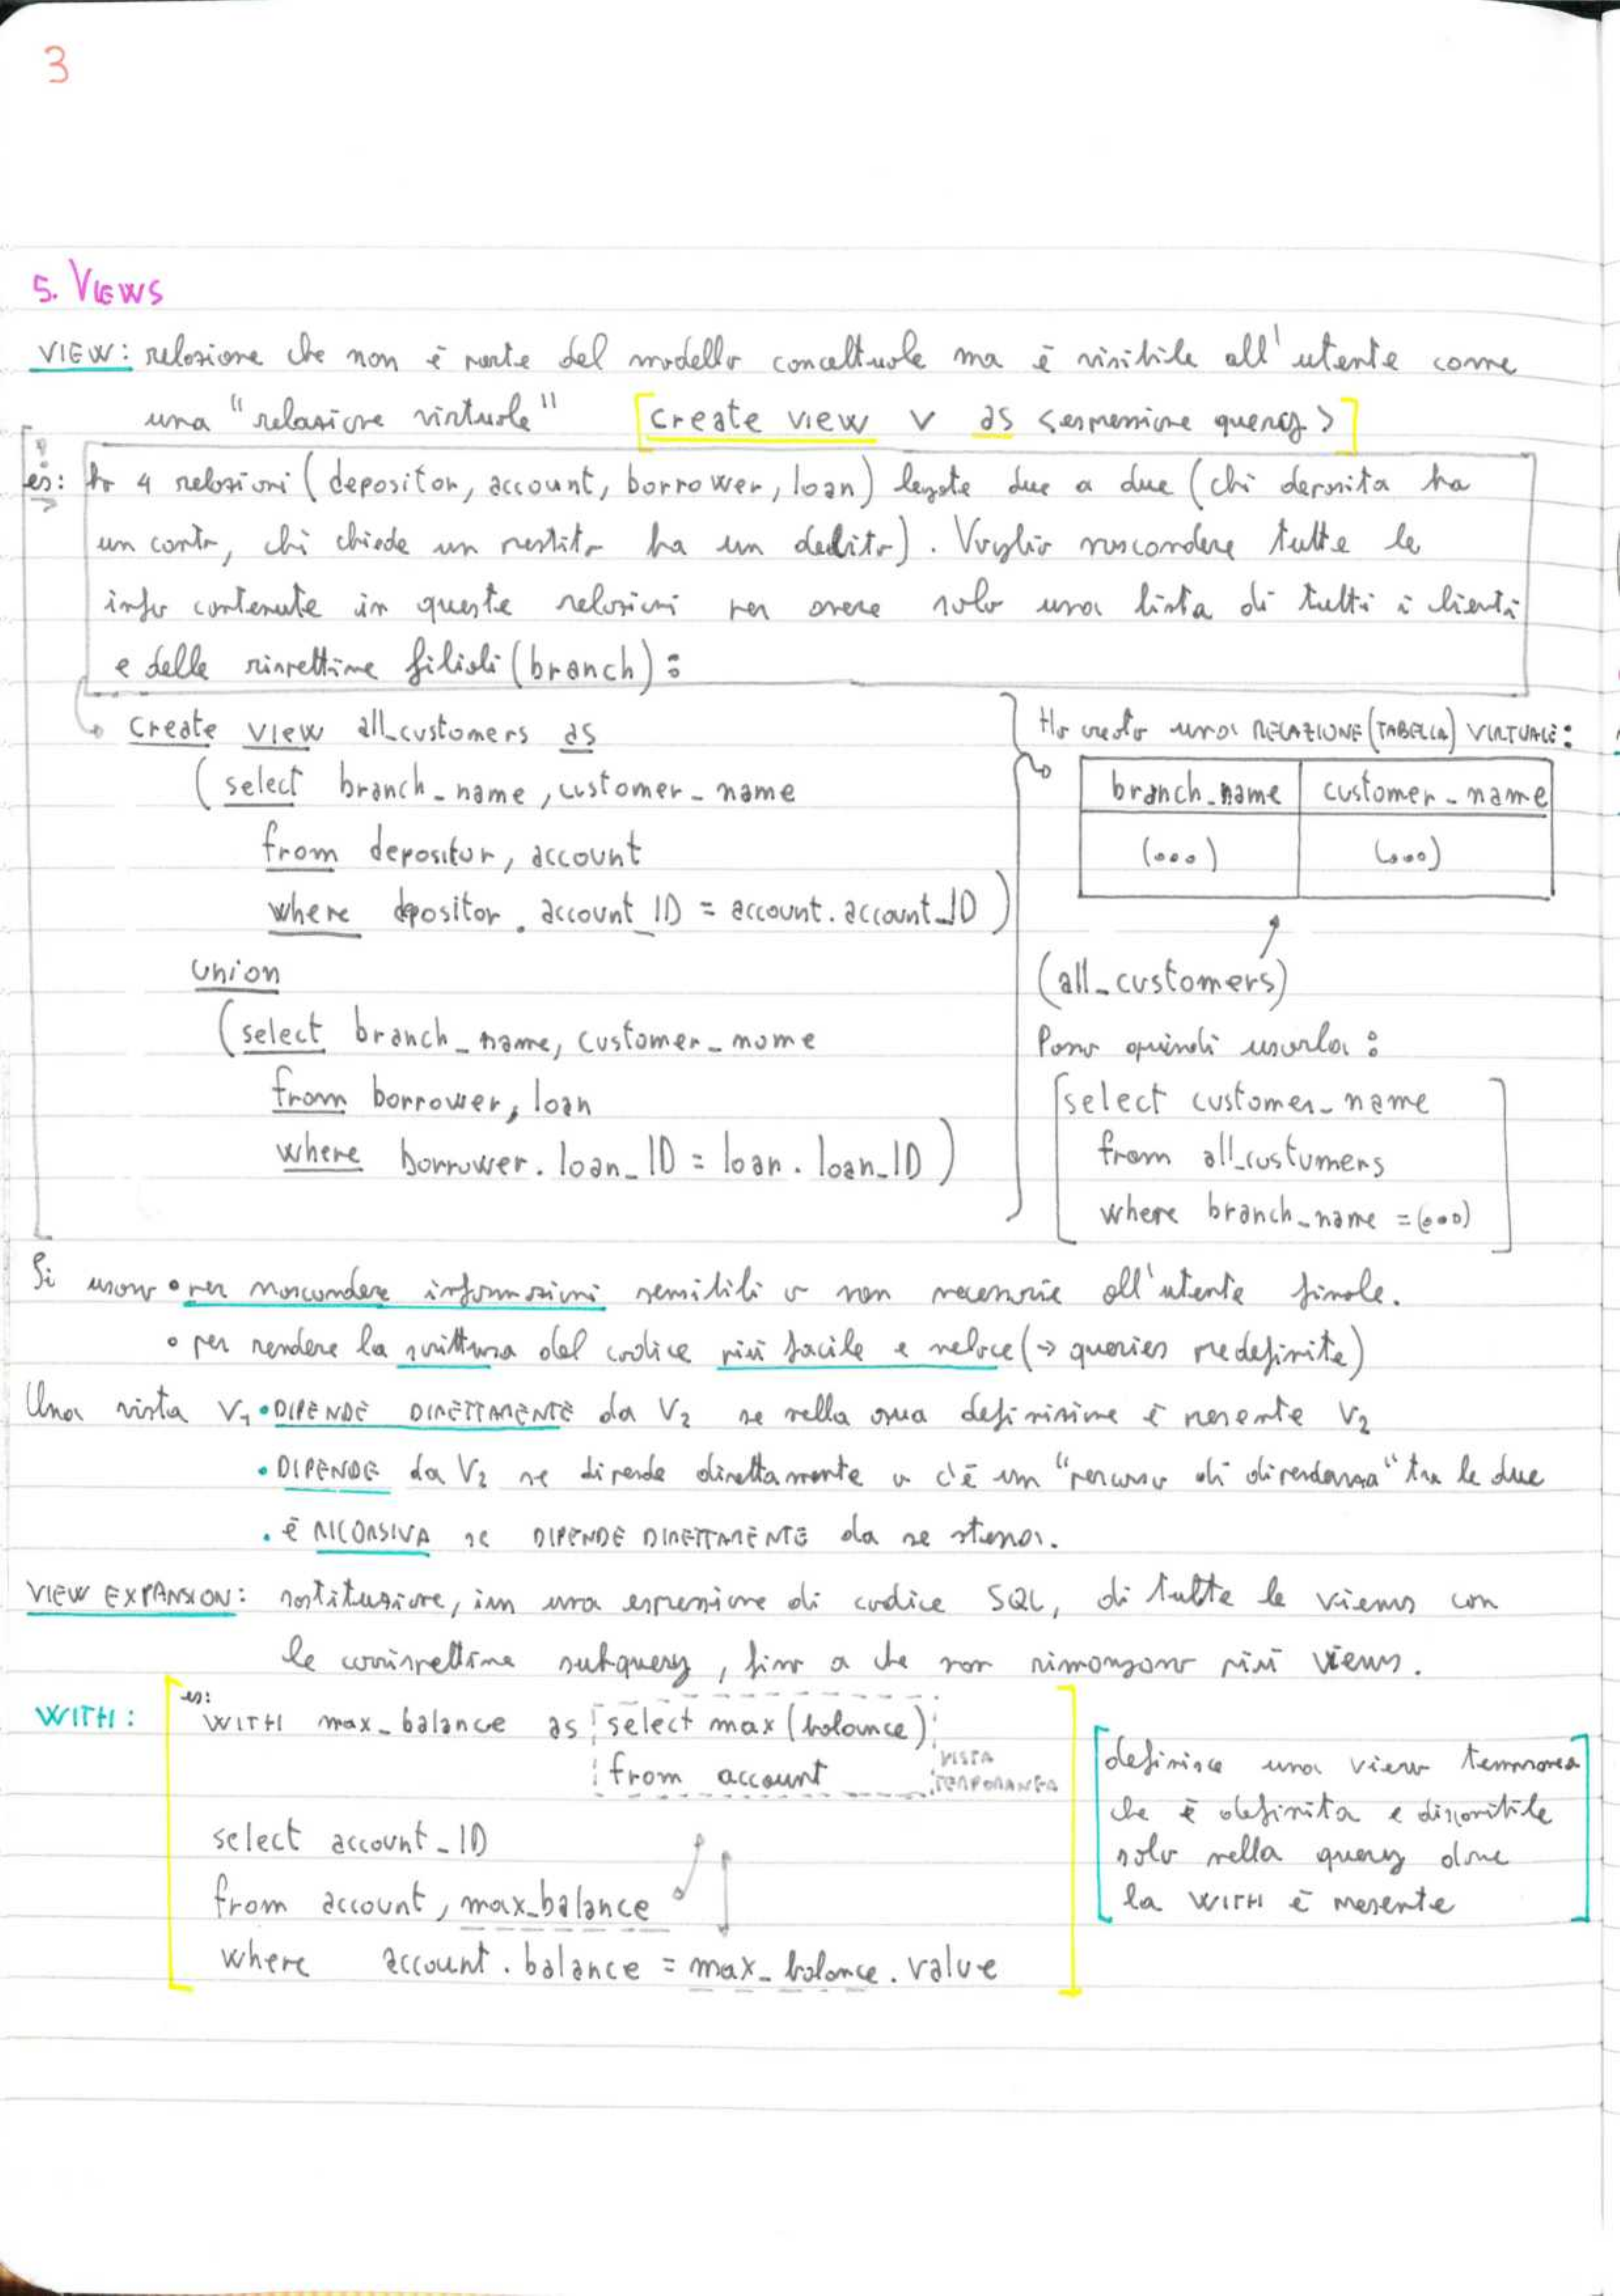 3
5. VIEWS
VIEW: relazione che non è parte del modello concettuale ma è visibile all'utente come
una "relazione virtuale" [create view v as <espressione query>]
es: ho 4 relazioni (depositor, account, borrower, loan) legate due a due (chi deposita ha
un conto, chi chiede un prestito ha un debito). Voglio nascondere tutte le
info contenute in queste relazioni per avere solo una lista di tutti i clienti
e delle rispettive filiali (branch):
create view all_customers as
(select branch_name, customer_name
from depositor, account
where depositor.account_ID = account.account_ID)
union
(select branch_name, customer_name
from borrower, loan
where borrower.loan_ID = loan.loan_ID)
Ho creato una RELAZIONE (TABELLA) VIRTUALE:
branch_name customer_name
(...) (...)
(all_customers)
Posso quindi usarla:
[select customer_name
from all_custumers
where branch_name = (...)]
Si usano • per nascondere informazioni sensibili o non necessarie all'utente finale.
• per rendere la scrittura del codice più facile e veloce (→ queries predefinite)
Una vista V1 • DIPENDE DIRETTAMENTE da V2 se nella sua definizione è presente V2
• DIPENDE da V2 se dipende direttamente o c'è un "percorso di dipendenza" tra le due
• è RICORSIVA se DIPENDE DIRETTAMENTE da se stessa.
VIEW EXPANSION: sostituzione, in una espressione di codice SQL, di tutte le views con
le corrispettive subquery, fino a che non rimangono più views.
WITH:
es:
WITH max_balance as select max(balance)
from account
VISTA
TEMPORANEA
select account_ID
from account, max_balance
where account.balance = max_balance.value
[definisce una view temporanea
che è definita e disponibile
solo nella query dove
la WITH è presente]